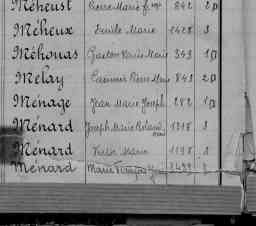 Méheust Pierre Marie 842 2D
Méheux Emile Marie 1428 3
Méhouas Gaston Marie 343 1D
Melay Casimir Pierre Marie 843 2D
Ménage Jean Marie Joseph 282 1D
Ménard Joseph Marie 1318 3
Ménard Victor Marie 1198 3
Ménard Marie